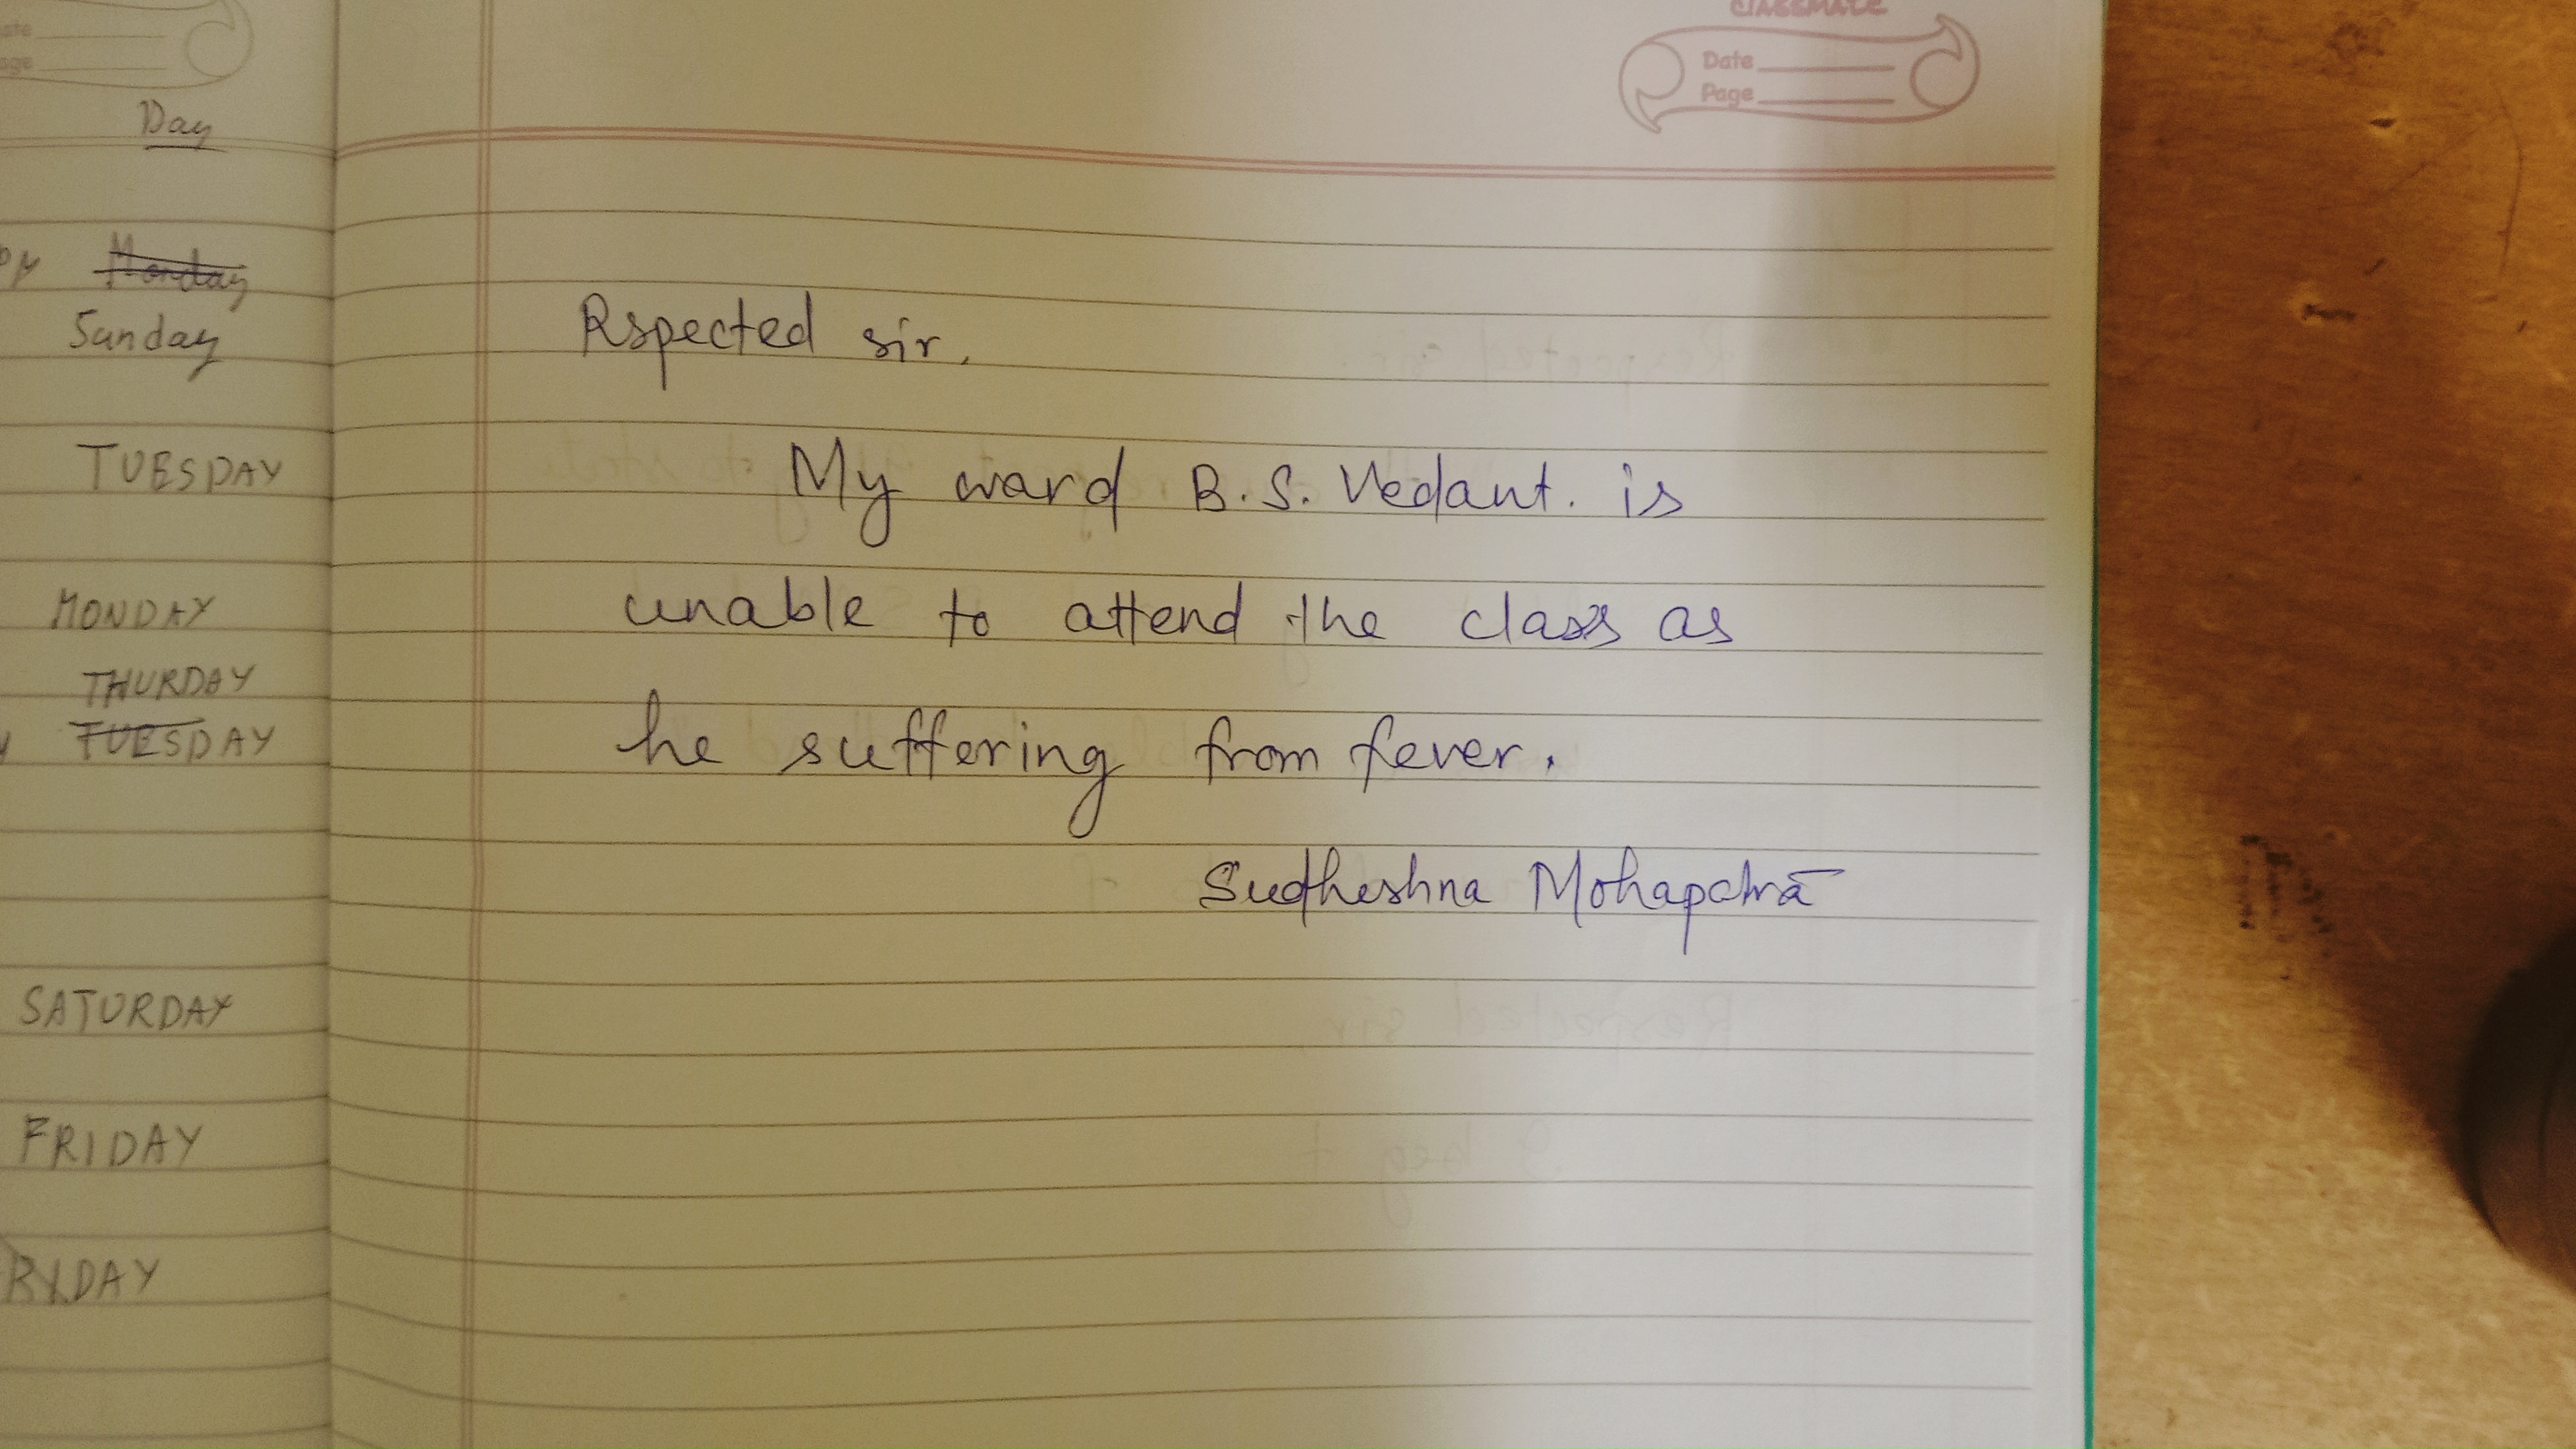 Day
Monday
Sunday
TUESDAY
MONDAY
THURDAY
TUESDAY
SATURDAY
FRIDAY
CLASSMATE
Date
Page
Rspected sir,
My ward B.S. Vedant. is
unable to attend the class as
he suffering from fever.
Sudheshna Mohapatra